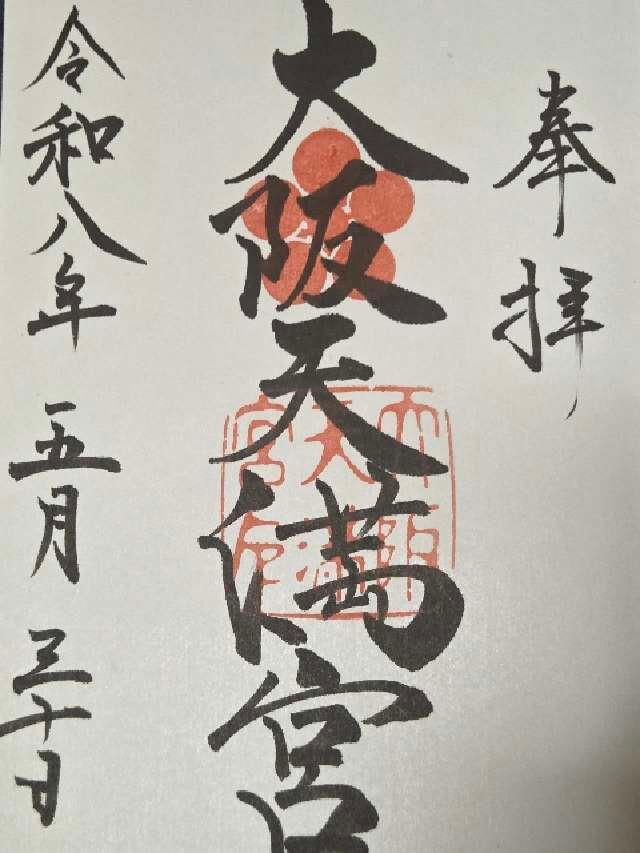 奉拝
大阪天満宮
令和八年五月三十日